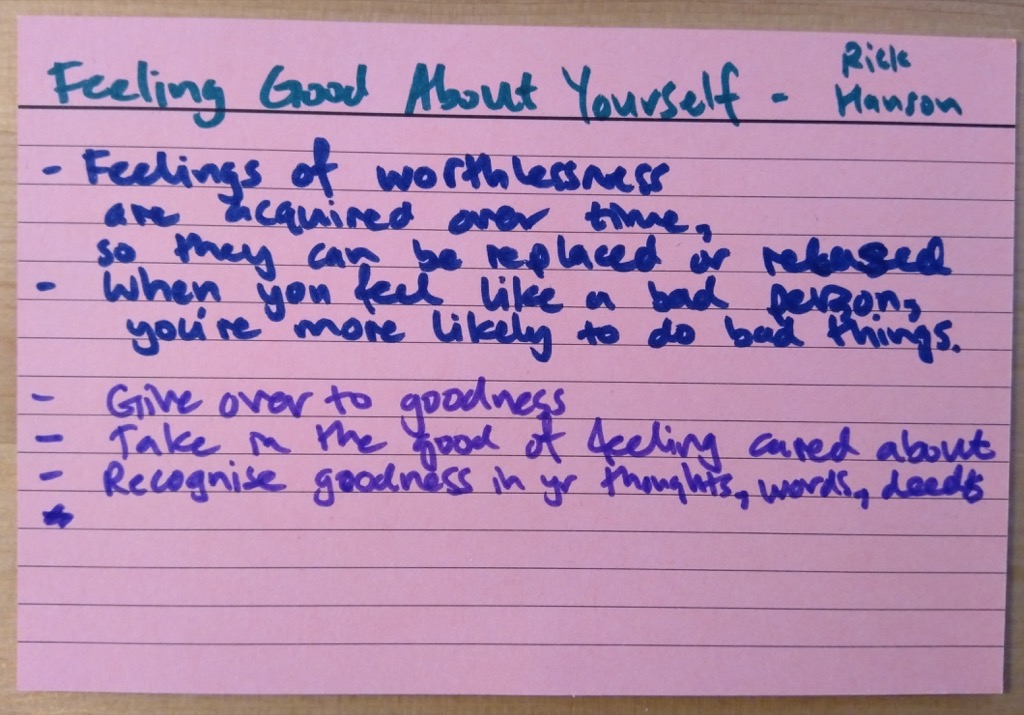 Feeling Good About Yourself - Rick Hanson
- Feelings of worthlessness
are acquired over time,
so they can be replaced or released
- When you feel like a bad person,
you're more likely to do bad things.
- Give over to goodness
- Take in the good of feeling cared about
- Recognise goodness in yr thoughts, words, deeds